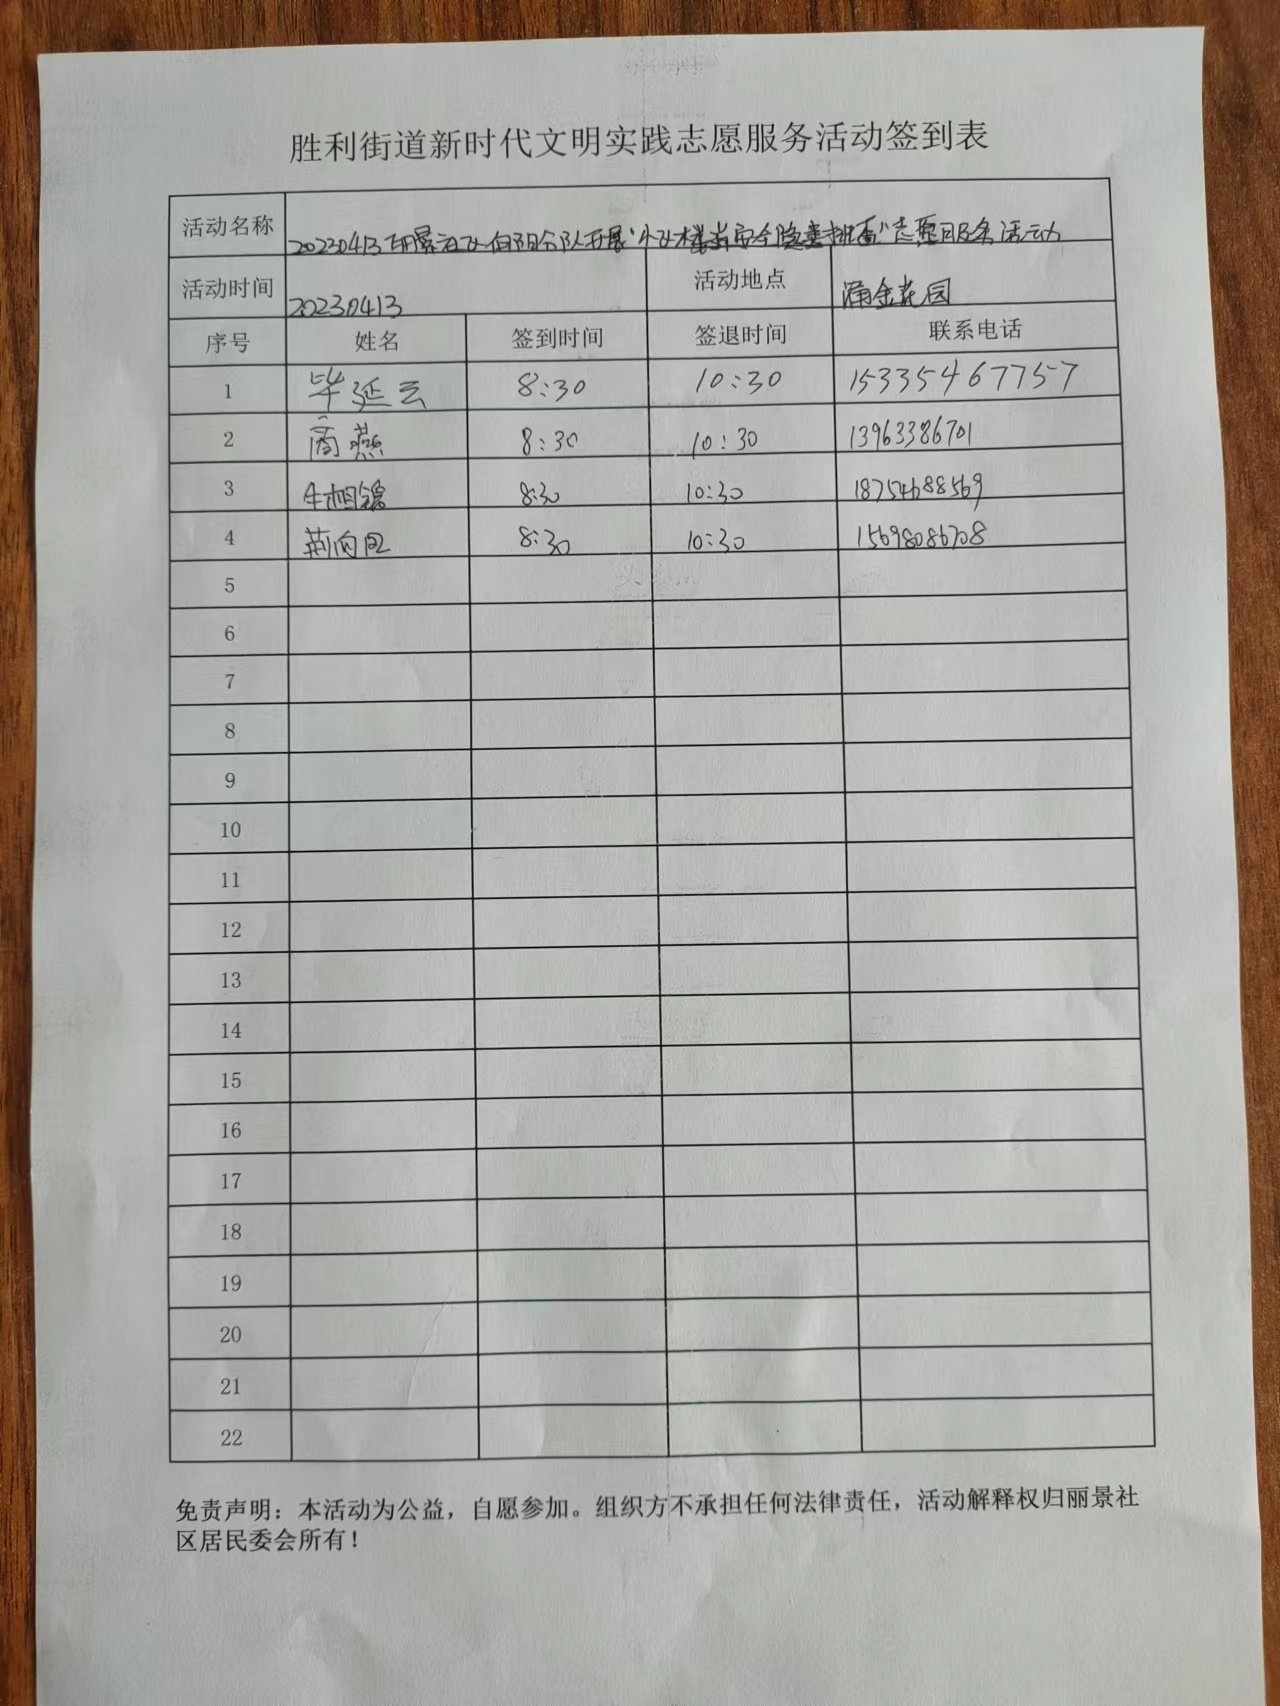 胜利街道新时代文明实践志愿服务活动签到表
活动名称 20230413丽景社区向阳分队开展“小区楼道安全隐患排查”志愿服务活动
活动时间 20230413 活动地点 涌金花园
序号 姓名 签到时间 签退时间 联系电话
1 毕延云 8:30 10:30 15335467757
2 商燕 8:30 10:30 13963386701
3 牛相 8:30 10:30 18754688569
4 荆向 8:30 10:30 15698086708
5
6
7
8
9
10
11
12
13
14
15
16
17
18
19
20
21
22
免责声明：本活动为公益，自愿参加。组织方不承担任何法律责任，活动解释权归丽景社
区居民委会所有！